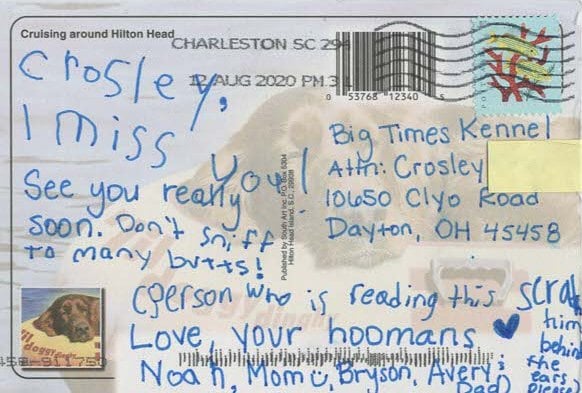 Cruising around Hilton Head
CHARLESTON SC 29
12 AUG 2020 PM 3
0 53768 12340 5
Crosley,
I miss
you!
See you really
soon. Don't sniff
to many butts!
Big Times Kennel
Attn: Crosley
10650 Clyo Road
Dayton, OH 45458
Published by South Art Inc. P.O. Box 5304
Hilton Head Island, S.C. 29938
(person who is reading this scratch
him
behind
the
ears
please)
Love, your hoomans
Noah, Mom, Bryson, Avery,
Dad